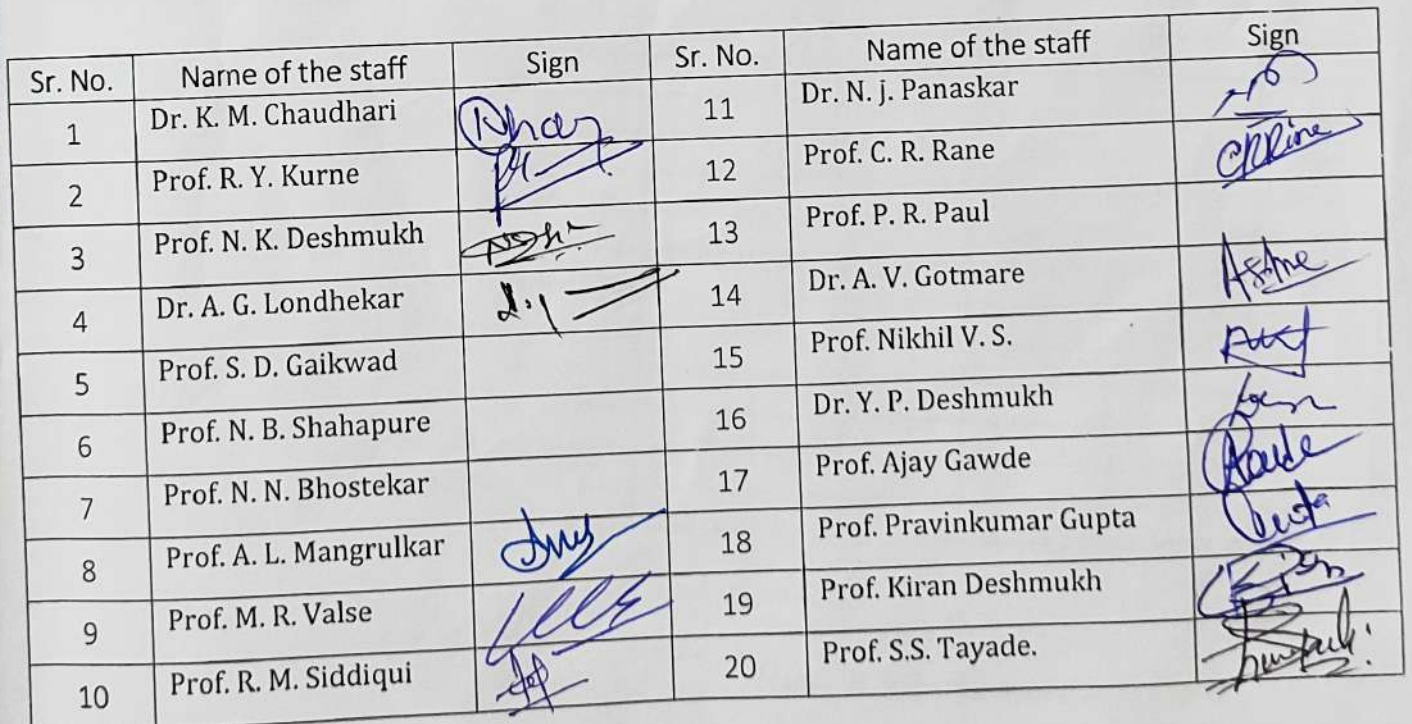 Sr. No. Name of the staff Sign Sr. No. Name of the staff Sign
1 Dr. K. M. Chaudhari 11 Dr. N. j. Panaskar
2 Prof. R. Y. Kurne 12 Prof. C. R. Rane
3 Prof. N. K. Deshmukh 13 Prof. P. R. Paul
4 Dr. A. G. Londhekar 14 Dr. A. V. Gotmare
5 Prof. S. D. Gaikwad 15 Prof. Nikhil V. S.
6 Prof. N. B. Shahapure 16 Dr. Y. P. Deshmukh
7 Prof. N. N. Bhostekar 17 Prof. Ajay Gawde
8 Prof. A. L. Mangrulkar 18 Prof. Pravinkumar Gupta
9 Prof. M. R. Valse 19 Prof. Kiran Deshmukh
10 Prof. R. M. Siddiqui 20 Prof. S.S. Tayade.